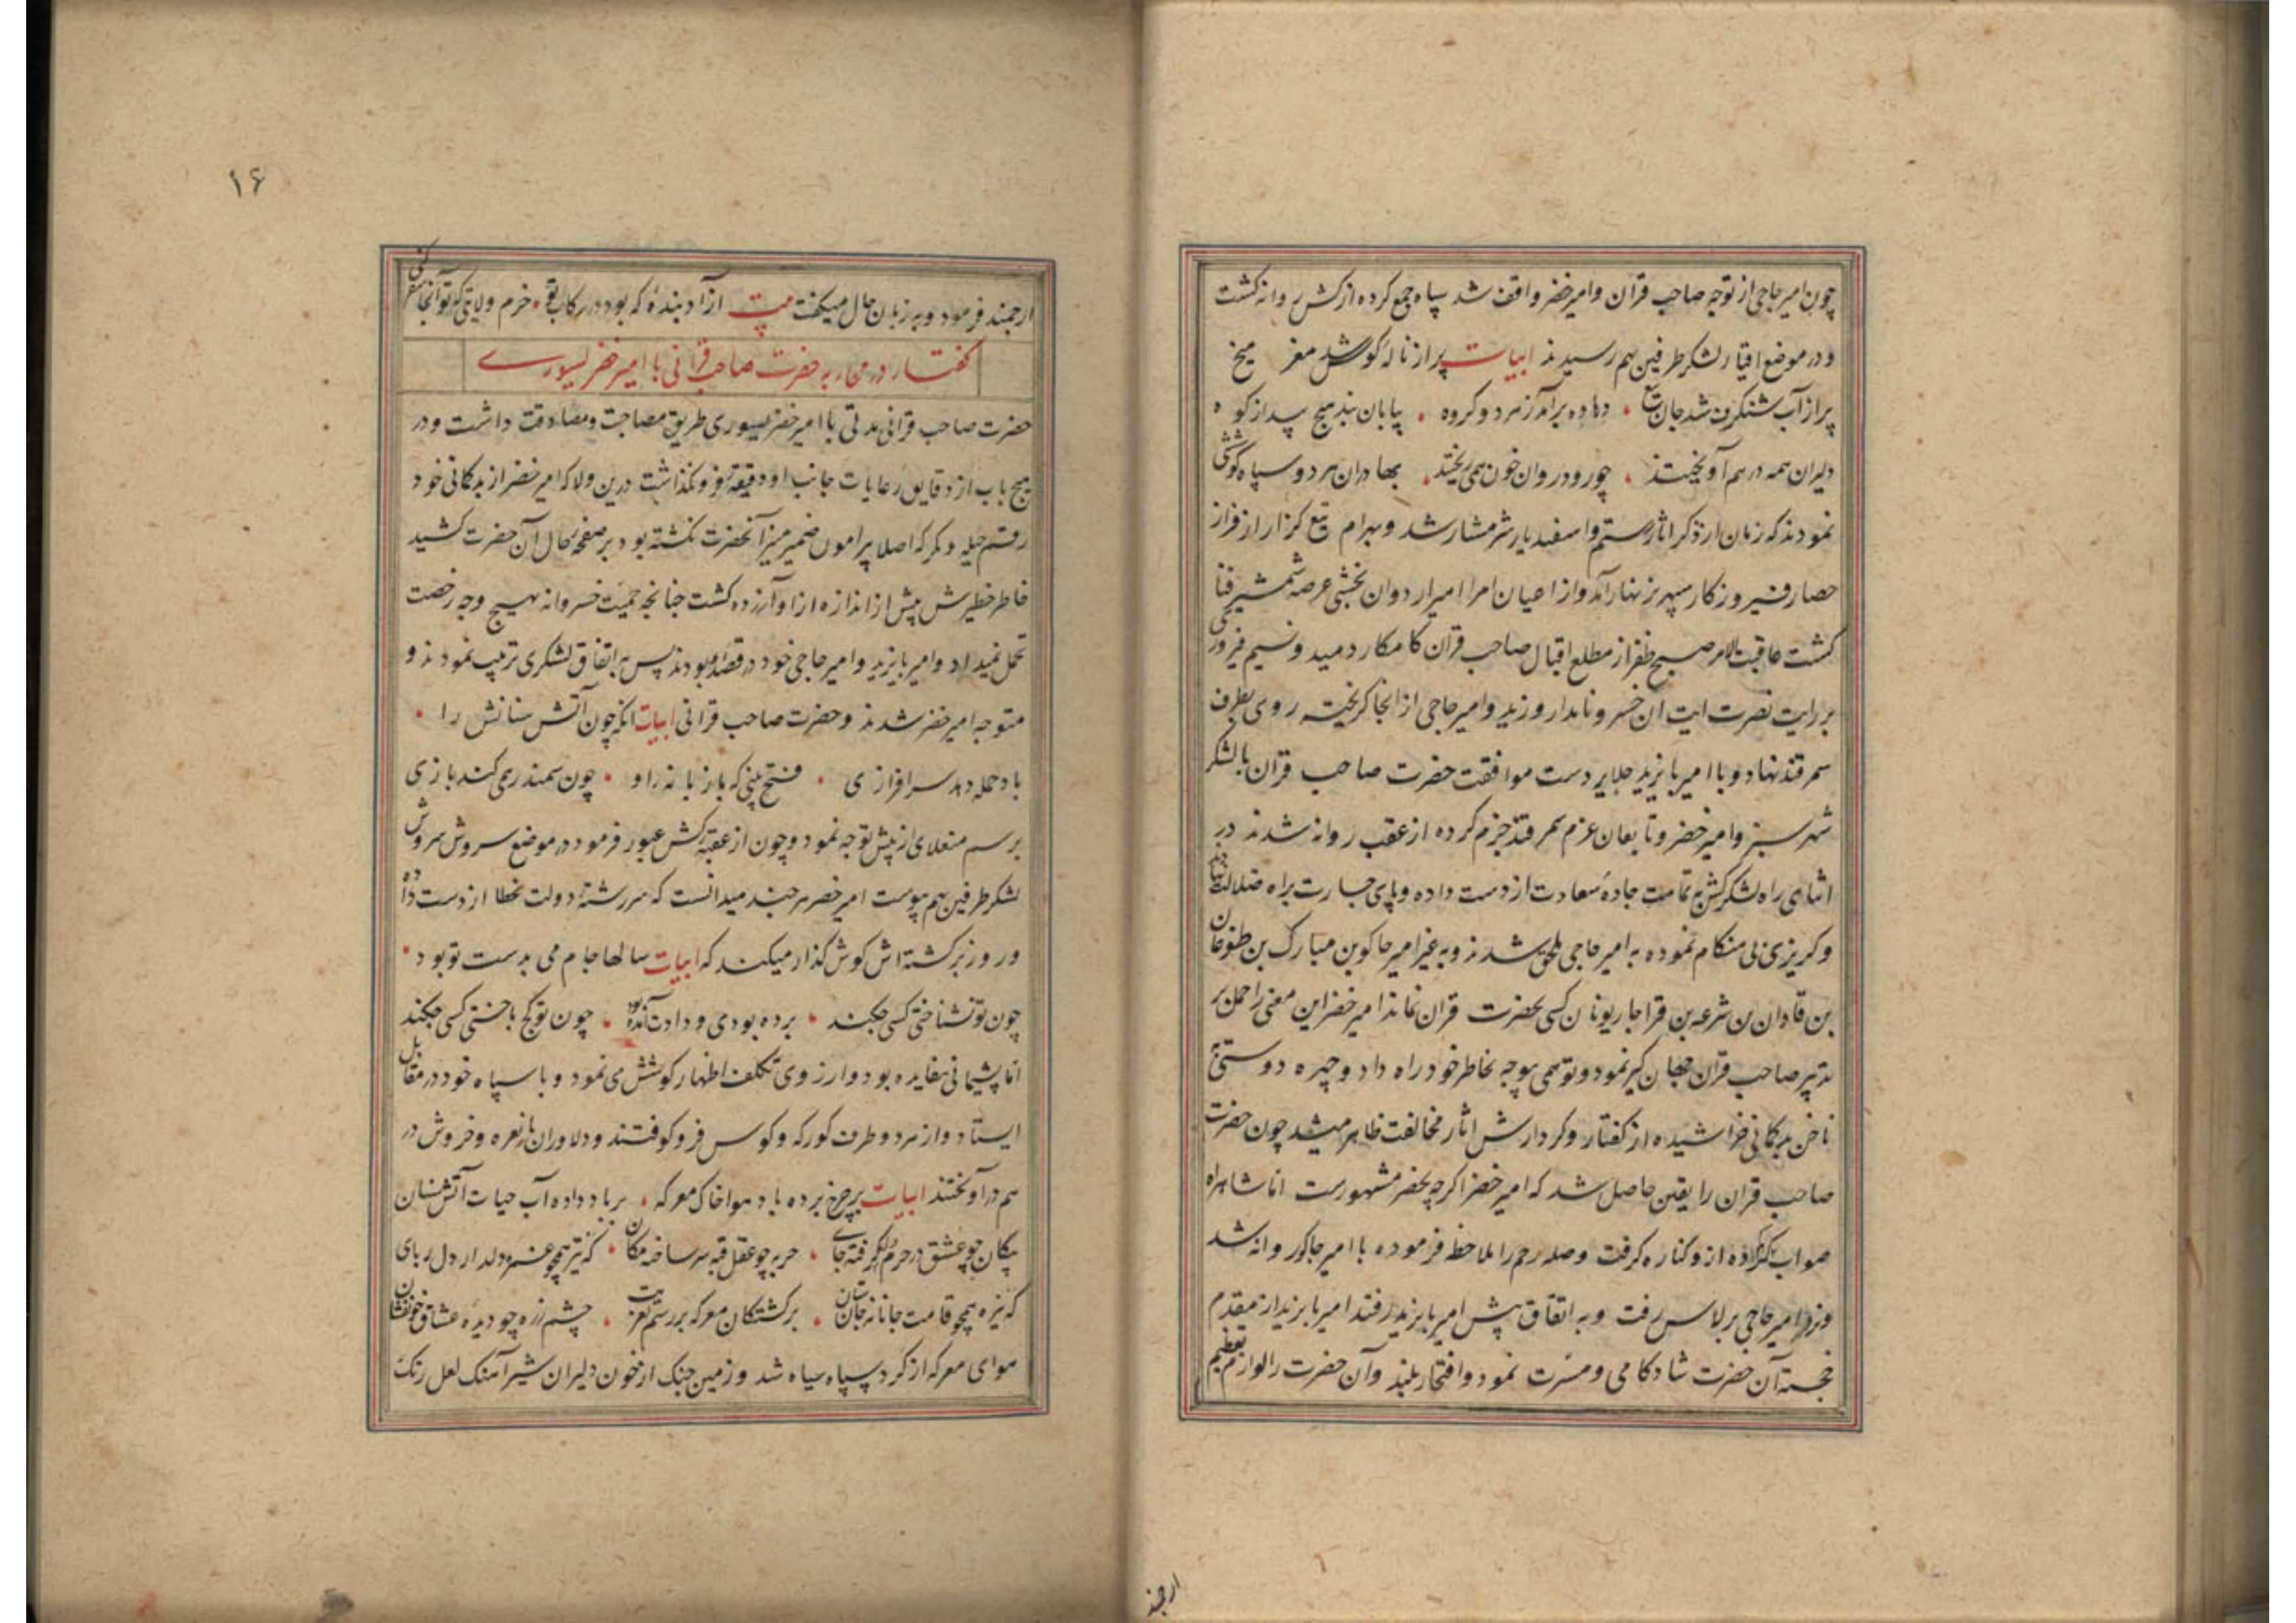 چون امیر حاجی از توجه صاحب قران و امیر خضر واقف شد سپاه جمع کرده از کش روانه کشت
و در موضع اقیار لشکر طرفین بهم رسیدند ابیات پر از ناله کوس شد مغز میخ
پر از آب شنکرف شد جان تیغ • دهاده برآمد ز هر دو کروه • بیابان نبد هیچ پیدا ز کوه
دلیران همه در هم آویختند • چو رود روان خون همی ریختند • بهادران هر دو سپاه کوششی
نمودند که زمان از ذکر اثار رستم و اسفندیار شرمشار شد و بهرام تیغ کزار از فراز
حصار فیروزکار سپهر بزنهار آمد و از احیان امرا امیر اردوان بخشی عرصه شمشیر فنا
کشت عاقبت الامر صبح ظفر از مطلع اقبال صاحب قران کامکار دمید و نسیم فیروزی
بر رایت نصرت ایت ان خسرو نامدار وزید و امیر حاجی از انجا کریخته روی بطرف
سمرقند نهاد و با امیر بایزید جلایر دست موافقت حضرت صاحب قران با لشکر
شهر سبز و امیر خضر و تابعان عزم سمرقند جزم کرده از عقب روانه شدند در
اثنای راه لشکر کش به تمامت جادهٔ سعادت از دست داده و پای جسارت براه ضلالت نهاده
و کریزی بی هنکام نموده به امیر حاجی ملحق شدند و به غیر امیر جاکو بن مبارک بن طغوخان
بن قادان بن شرعه بن قراجار یونان کسی بحضرت قران نماند امیر خضر این معنی را حمل بر
تدبیر صاحب قران جهان کیر نمود و توهمی بوجه بخاطر خود راه داد و چهره دوستی به
ناخن بدکمانی خراشیده از کفتار و کردارش اثار مخالفت ظاهر میشد چون حضرت
صاحب قران را یقین حاصل شد که امیر خضر اکرچه بخضر مشهورست اما شاهراه
صواب کم کرده از و کناره کرفت وصله رحم را ملاحظه فرموده با امیر جاکو روانه شد
و نزد امیر حاجی برلاس رفت و به اتفاق پیش امیر بایزید رفتند امیر بایزید از مقدم
خجسته آن حضرت شادکامی و مسرت نمود و افتخار بلیند و آن حضرت را لوازم تعظیم
ارجمند
۱۶
ارجمند فرمود و به زبان حال میکفت بیت ازآد بندهٔ که بود در رکاب تو • خرم ولایتی که تو آنجا سفر کنی
کفتار در محاربه حضرت صاحب قرانی با امیر خضر یسوری
حضرت صاحب قرانی مدتی با امیر خضر یسوری طریق مصاحبت و مصادقت داشت و در
هیچ باب از دقایق رعایات جانب او دقیقهٔ فرو نکذاشت درین ولا که امیر خضر از بدکانی خود
رقم حیله و مکر که اصلا پیرامون ضمیر منیر آنحضرت نکشته بود بر صفحه حال آن حضرت کشید
خاطر خطیرش بیش از اندازه ازاو آرزده کشت جنانجه حمیت خسروانه بهیچ وجه رخصت
تحمل نمیداد و امیر بایزید و امیر حاجی خود در قصد او بودند پس به اتفاق لشکری ترتیب نمودند و
متوجه امیر خضر شدند و حضرت صاحب قرانی ابیات انکه چون آتش سنانش را •
باد حمله دهد سرافرازی • فتح بینی که با زبانه او • چون سمندر همی کند بازی
برسم منغلای از پیش توجه نمود و چون از عقبهٔ کش عبور فرمود در موضع سروش سروش
لشکر طرفین بهم پیوست امیر خضر هر جند میدانست که سررشتهٔ دولت بخطا از دست داده
و روز برکشته اش کوش کذار میکند که ابیات سالها جام می بدست تو بود •
چون تو نشناختی کسی جکند • برده بودی و دادت آمده بود • چون تو کج باختی کسی جکند
اما پشیمانی بیفایده بود و از روی تکلف اظهار کوشش می نمود و با سپاه خود در مقابل
ایستاد و از هر دو طرف کورکه و کوس فرو کوفتند و دلاوران با نعره و خروش در
هم درآویختند ابیات بر چرخ برده باد هوا خاک معرکه • برباد داده آب حیات آتش سنان
پیکان چو عشق در حرم دل کرفته جای • حربه چو عقل قبه سر ساخته مکان • که تیر همچو غمزه دلدار دل ربای
که نیزه همچو قامت جانانه جان ستان • برکشتکان معرکه بر رستم تعزیت • چشم زره چو دیده عشاق خونفشان
هوای معرکه از کرد سپاه سیاه شد و زمین جنک از خون دلیران شیر آهنک لعل رنک